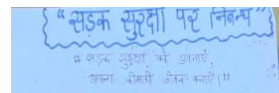 "सड़क सुरक्षा पर निबन्ध"
"सड़क सुरक्षा को अपनाएं,
अपना कीमती जीवन बचाएं।"